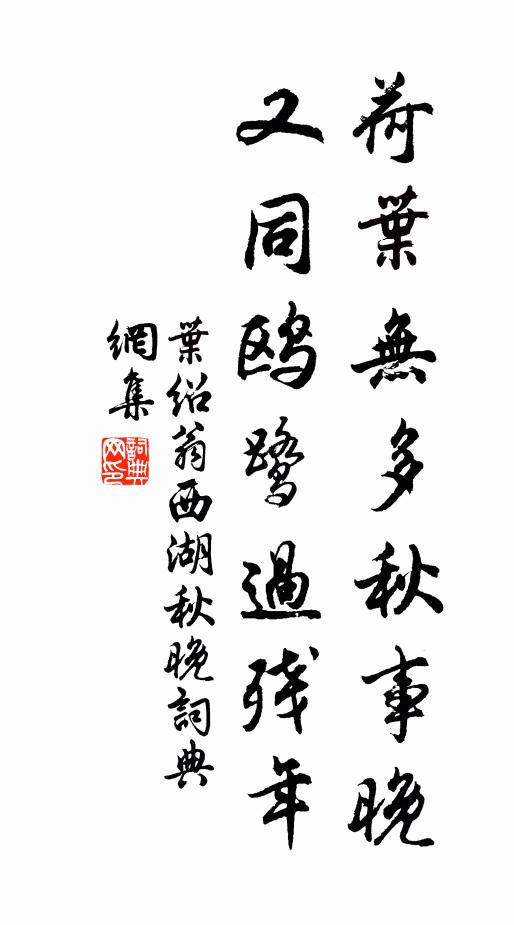 荷葉無多秋事晚
又同鷗鷺過残年
葉紹翁西湖秋晚詞典
網集
詞典網印